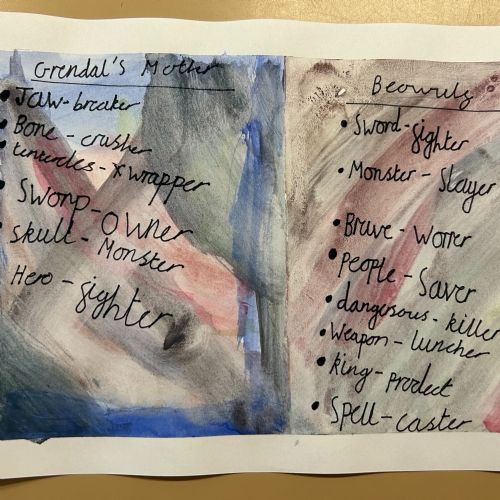 Grendal's Mother
Jaw-breaker
Bone-crusher
tentercles-xwrapper
Swomp-owner
Skull-Monster
Hero-fighter
Beowulf
Sword-fighter
Monster-Slayer
Brave-Worrer
people-Saver
dangerous-killer
Weapon-luncher
king-protect
Spell-caster